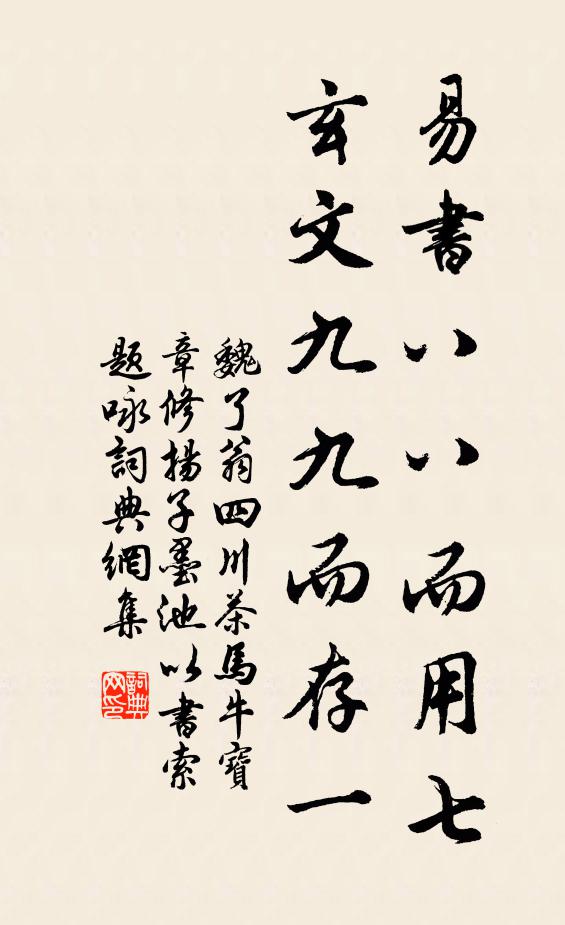 易書八八而用七
玄文九九而存一
魏了翁四川茶馬牛寶
章修揚子墨池以書索
題咏詞典網集
詞典網印